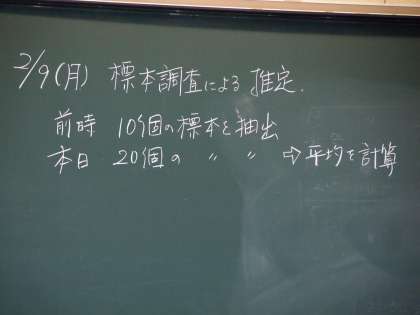 2/9(月) 標本調査による推定.
前時 10個の標本を抽出
本日 20個の 〃 〃 ⇨平均を計算